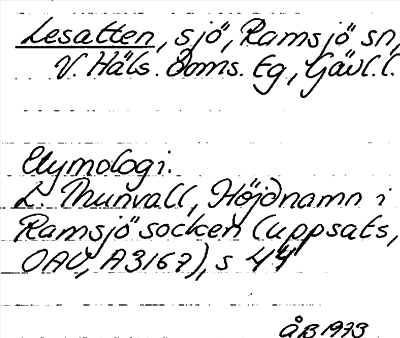 Lesatten, sjö, Ramsjö sn,
V. Häls. Doms. Eg, Gävl.l.
Etymologi.
L. Thunvall, Höjdnamn i
Ramsjö socken (uppsats,
OAU, A3167), s 44
ÅB 1973